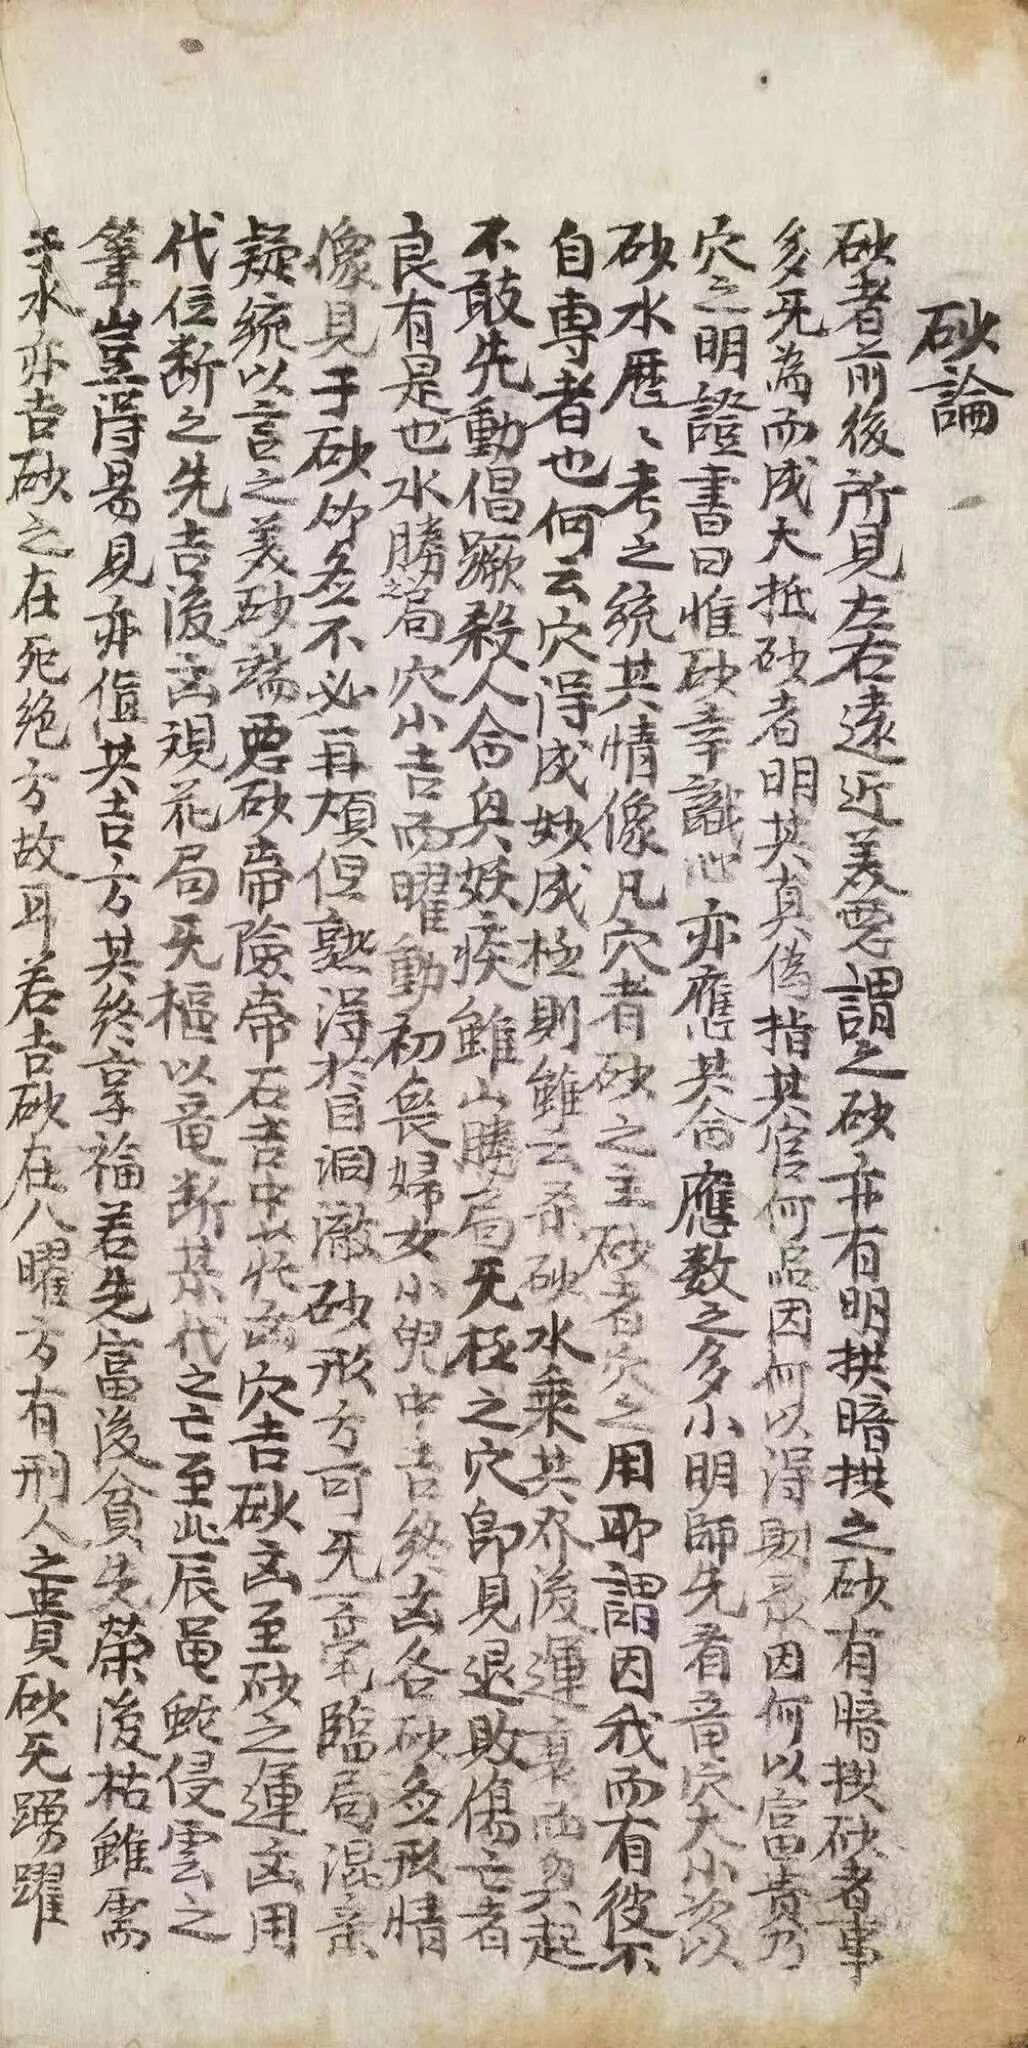 砂論
砂者前後所見左右遠近美惡謂之砂亦有明拱暗拱之砂有暗拱砂者事
多旡為而成大抵砂者明其真偽指其官何以因何以得財祿因何以富貴乃
穴之明證書曰惟砂幸識心亦應其命應数之多小明師先看竜穴大小次以
砂水歷〻考之統其情像凡穴者砂之主砂者穴之用所謂因我而有彼不
自専者也何云穴淂成妙成極則雖云柔砂水乘其界後運衰而起
不敢先動倡蹶殺人命與妖疾雖山勝局旡極之穴即見退敗傷亡者
良有是也水勝之局穴小吉而曜動初喪婦女小兒中吉終凶各砂名形情
像見于砂節名不必再煩但熟淂扵目洞澈砂形方可旡一毫臨局混亲
疑統以言之美砂端惡砂帶險帶石吉中花凶穴吉砂凶至砂之運凶用
代位断之先吉後凶視花局旡樞以竜断某代之亡至此辰黾蛇侵雲之
筆豈淂易見亦值其吉方其終享福若先富後貧先荣後枯雖需
于水亦吉砂之在死絶方故耳若吉砂在八曜方有刑人之貴砂旡踴躍